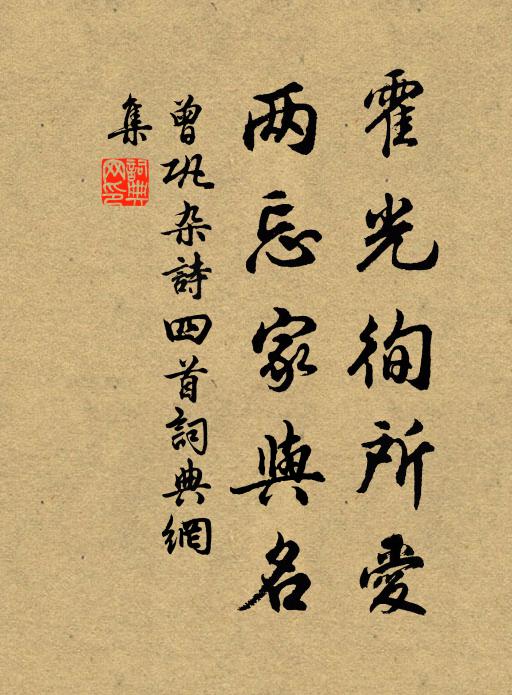 霍光徇所愛
两忘家與名
曾巩杂詩四首詞典網
集
詞典網印